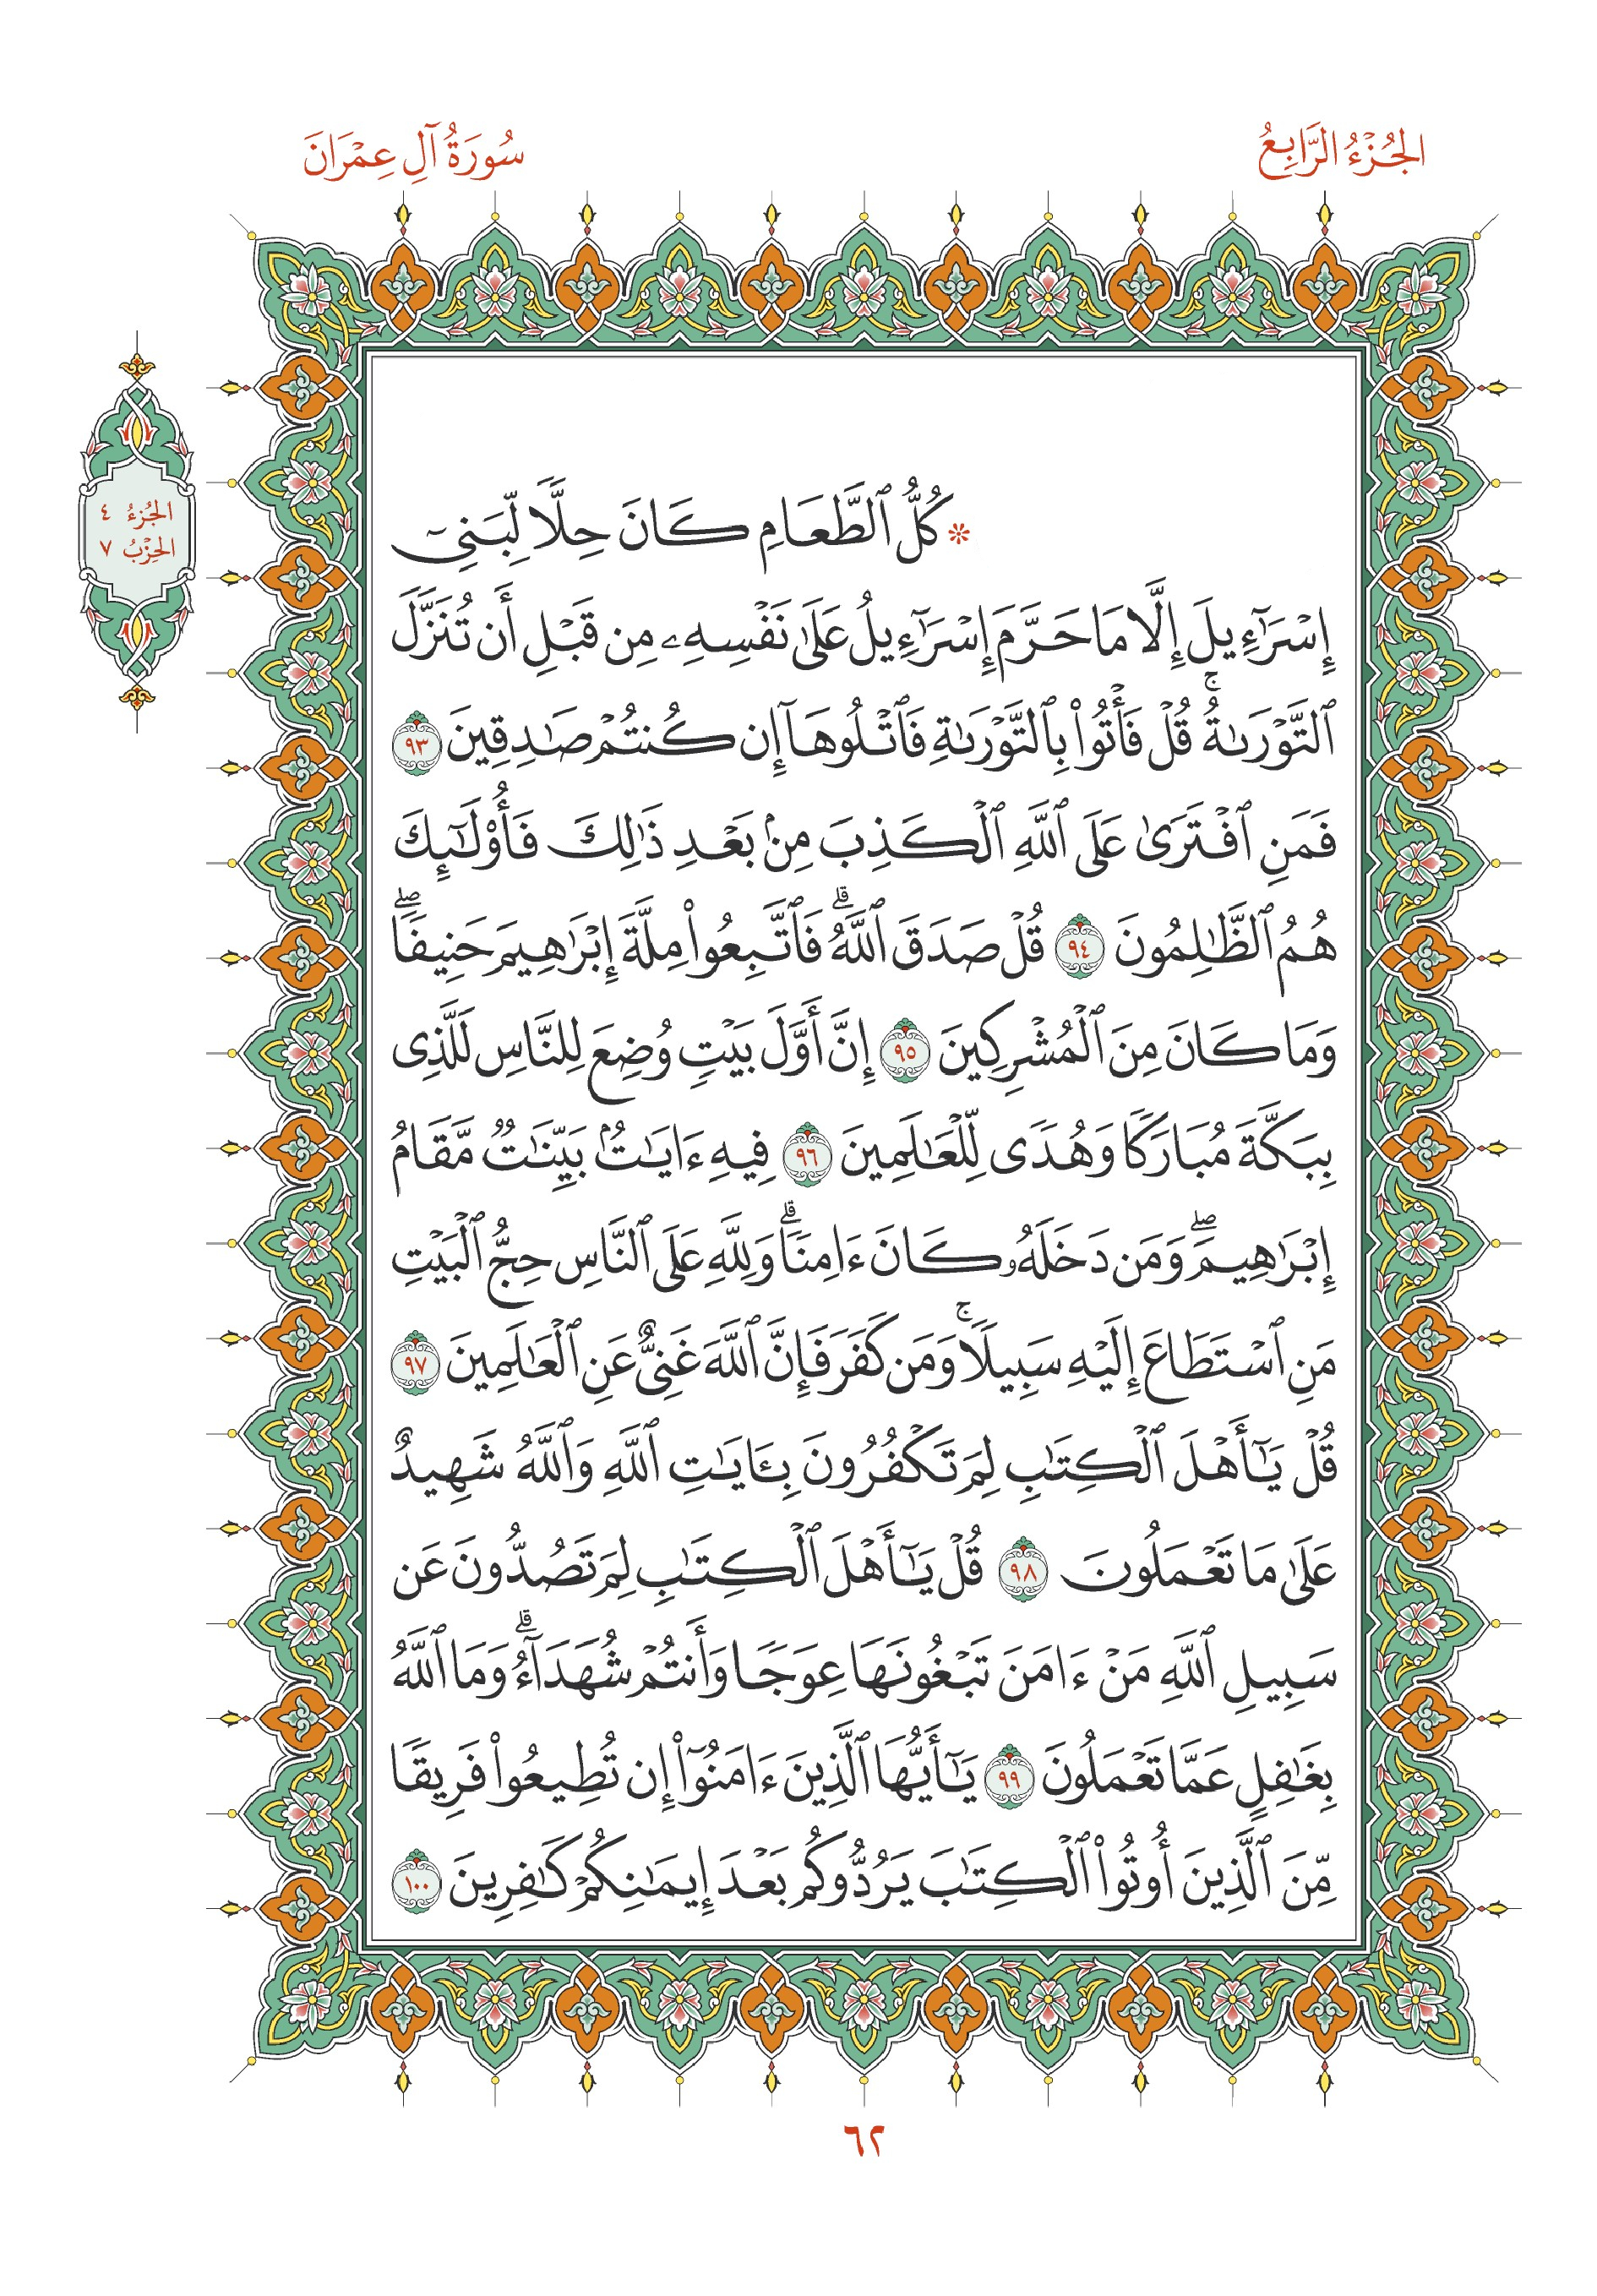 الجُزْءُ الرَّابِعُ
سُورَةُ آلِ عِمْرَانَ
الجُزْءُ ٤
الحِزْبُ ٧
۞ كُلُّ ٱلطَّعَامِ كَانَ حِلّٗا لِّبَنِيٓ
إِسۡرَٰٓءِيلَ إِلَّا مَا حَرَّمَ إِسۡرَٰٓءِيلُ عَلَىٰ نَفۡسِهِۦ مِن قَبۡلِ أَن تُنَزَّلَ
ٱلتَّوۡرَىٰةُۚ قُلۡ فَأۡتُواْ بِٱلتَّوۡرَىٰةِ فَٱتۡلُوهَآ إِن كُنتُمۡ صَٰدِقِينَ ٩٣
فَمَنِ ٱفۡتَرَىٰ عَلَى ٱللَّهِ ٱلۡكَذِبَ مِنۢ بَعۡدِ ذَٰلِكَ فَأُوْلَٰٓئِكَ
هُمُ ٱلظَّٰلِمُونَ ٩٤ قُلۡ صَدَقَ ٱللَّهُۗ فَٱتَّبِعُواْ مِلَّةَ إِبۡرَٰهِيمَ حَنِيفٗاۖ
وَمَا كَانَ مِنَ ٱلۡمُشۡرِكِينَ ٩٥ إِنَّ أَوَّلَ بَيۡتٖ وُضِعَ لِلنَّاسِ لَلَّذِي
بِبَكَّةَ مُبَارَكٗا وَهُدٗى لِّلۡعَٰلَمِينَ ٩٦ فِيهِ ءَايَٰتُۢ بَيِّنَٰتٞ مَّقَامُ
إِبۡرَٰهِيمَۖ وَمَن دَخَلَهُۥ كَانَ ءَامِنٗاۗ وَلِلَّهِ عَلَى ٱلنَّاسِ حِجُّ ٱلۡبَيۡتِ
مَنِ ٱسۡتَطَاعَ إِلَيۡهِ سَبِيلٗاۚ وَمَن كَفَرَ فَإِنَّ ٱللَّهَ غَنِيٌّ عَنِ ٱلۡعَٰلَمِينَ ٩٧
قُلۡ يَٰٓأَهۡلَ ٱلۡكِتَٰبِ لِمَ تَكۡفُرُونَ بِـَٔايَٰتِ ٱللَّهِ وَٱللَّهُ شَهِيدٌ
عَلَىٰ مَا تَعۡمَلُونَ ٩٨ قُلۡ يَٰٓأَهۡلَ ٱلۡكِتَٰبِ لِمَ تَصُدُّونَ عَن
سَبِيلِ ٱللَّهِ مَنۡ ءَامَنَ تَبۡغُونَهَا عِوَجٗا وَأَنتُمۡ شُهَدَآءُۗ وَمَا ٱللَّهُ
بِغَٰفِلٍ عَمَّا تَعۡمَلُونَ ٩٩ يَٰٓأَيُّهَا ٱلَّذِينَ ءَامَنُوٓاْ إِن تُطِيعُواْ فَرِيقٗا
مِّنَ ٱلَّذِينَ أُوتُواْ ٱلۡكِتَٰبَ يَرُدُّوكُم بَعۡدَ إِيمَٰنِكُمۡ كَٰفِرِينَ ١٠٠
٦٢